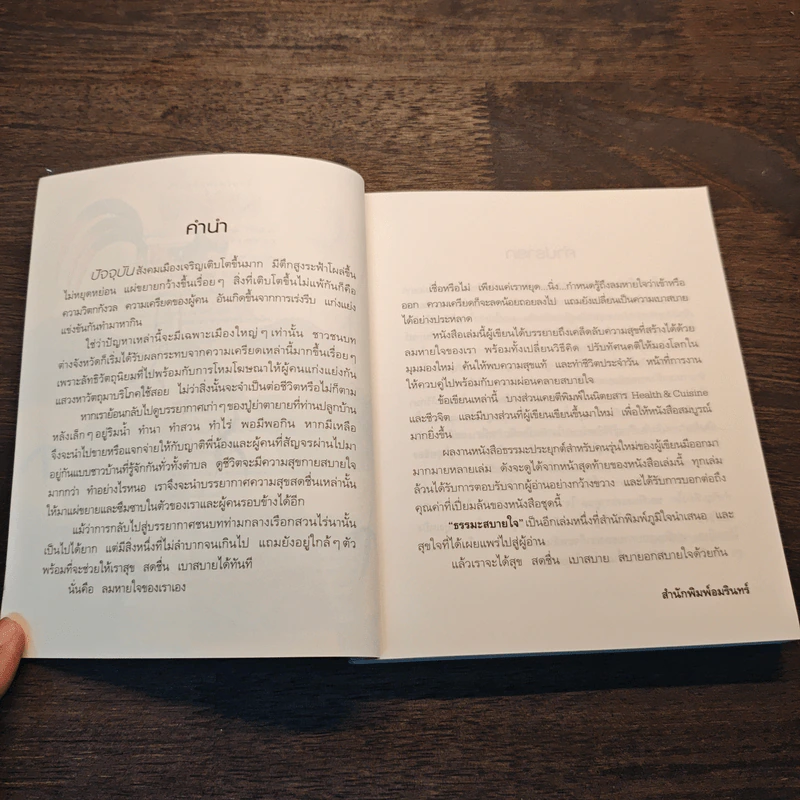 คำนำ
ปัจจุบันสังคมเมืองเจริญเติบโตขึ้นมาก มีตึกสูงระฟ้าโผล่ขึ้น
ไม่หยุดหย่อน แผ่ขยายกว้างขึ้นเรื่อยๆ สิ่งที่เติบโตขึ้นไม่แพ้กันก็คือ
ความวิตกกังวล ความเครียดของผู้คน อันเกิดขึ้นจากการเร่งรีบ แก่งแย่ง
แข่งขันกันทำมาหากิน
ใช่ว่าปัญหาเหล่านี้จะมีเฉพาะเมืองใหญ่ๆ เท่านั้น ชาวชนบท
ต่างจังหวัดก็เริ่มได้รับผลกระทบจากความเครียดเหล่านี้มากขึ้นเรื่อยๆ
เพราะลัทธิวัตถุนิยมที่ไปพร้อมกับการโหมโฆษณาให้ผู้คนแก่งแย่งกัน
แสวงหาวัตถุมาบริโภคใช้สอย ไม่ว่าสิ่งนั้นจะจำเป็นต่อชีวิตหรือไม่ก็ตาม
หากเราย้อนกลับไปดูบรรยากาศเก่าๆ ของปู่ย่าตายายที่ท่านปลูกบ้าน
หลังเล็กๆ อยู่ริมน้ำ ทำนา ทำสวน ทำไร่ พอมีพอกิน หากมีเหลือ
จึงจะนำไปขายหรือแจกจ่ายให้กับญาติพี่น้องและผู้คนที่สัญจรผ่านไปมา
อยู่กันแบบชาวบ้านที่รู้จักกันทั่วทั้งตำบล ดูชีวิตจะมีความสุขกายสบายใจ
มากกว่า ทำอย่างไรหนอ เราจึงจะนำบรรยากาศความสุขสดชื่นเหล่านั้น
ให้มาแผ่ขยายและซึมซาบในตัวของเราและผู้คนรอบข้างได้อีก
แม้ว่าการกลับไปสู่บรรยากาศชนบทท่ามกลางเรือกสวนไร่นานั้น
เป็นไปได้ยาก แต่มีสิ่งหนึ่งที่ไม่ลำบากจนเกินไป แถมยังอยู่ใกล้ๆ ตัว
พร้อมที่จะช่วยให้เราสุข สดชื่น เบาสบายได้ทันที
นั่นคือ ลมหายใจของเราเอง
เชื่อหรือไม่ เพียงแค่เราหยุด...นิ่ง...กำหนดรู้ถึงลมหายใจว่าเข้าหรือ
ออก ความเครียดก็จะลดน้อยถอยลงไป แถมยังเปลี่ยนเป็นความเบาสบาย
ได้อย่างประหลาด
หนังสือเล่มนี้ผู้เขียนได้บรรยายถึงเคล็ดลับความสุขที่สร้างได้ด้วย
ลมหายใจของเรา พร้อมทั้งเปลี่ยนวิธีคิด ปรับทัศนคติให้มองโลกใน
มุมมองใหม่ ค้นให้พบความสุขแท้ และทำชีวิตประจำวัน หน้าที่การงาน
ให้ควบคู่ไปพร้อมกับความผ่อนคลายสบายใจ
ข้อเขียนเหล่านี้ บางส่วนเคยตีพิมพ์ในนิตยสาร Health & Cuisine
และชีวจิต และมีบางส่วนที่ผู้เขียนเขียนขึ้นมาใหม่ เพื่อให้หนังสือสมบูรณ์
มากยิ่งขึ้น
ผลงานหนังสือธรรมะประยุกต์สำหรับคนรุ่นใหม่ของผู้เขียนมีออกมา
มากมายหลายเล่ม ดังจะดูได้จากหน้าสุดท้ายของหนังสือเล่มนี้ ทุกเล่ม
ล้วนได้รับการตอบรับจากผู้อ่านอย่างกว้างขวาง และได้รับการบอกต่อถึง
คุณค่าที่เปี่ยมล้นของหนังสือชุดนี้
"ธรรมะสบายใจ" เป็นอีกเล่มหนึ่งที่สำนักพิมพ์ภูมิใจนำเสนอ และ
สุขใจที่ได้เผยแพร่ไปสู่ผู้อ่าน
แล้วเราจะได้สุข สดชื่น เบาสบาย สบายอกสบายใจด้วยกัน
สำนักพิมพ์อมรินทร์